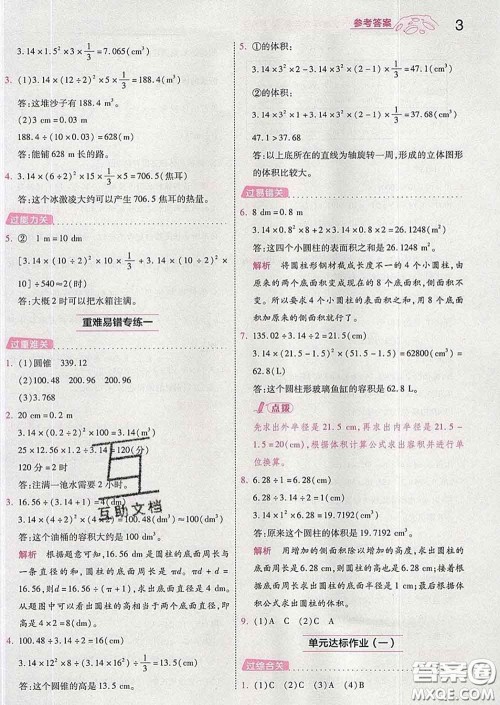 参考答案
3
3.14×1.5²×3×1/3=7.065(cm³)
3. (1)3.14×(12÷2)²×5×1/3=188.4(m³)
答:这堆沙子有 188.4 m³。
(2)3 cm=0.03 m
188.4÷(10×0.03)=628(m)
答:能铺 628 m 长的路。
4. 3.14×(6÷2)²×15×1/3×5=706.5(焦耳)
答:这个冰激凌大约可以产生 706.5 焦耳的热量。
过能力关
5. ② 1 m=10 dm
[3.14×(10÷2)²×10+3.14×(10÷2)²×
]÷540≈2(时)
答:大概 2 时可以把水箱注满。
重难易错专练一
过重难关
1. (1)圆锥 339.12
(2)100.48 200.96 200.96
(3)3.768
2. 20 cm=0.2 m
3.14×(0.2÷2)²×100=3.14(m³)
25×12.56×1.2÷3.14=120(分)
120 分=2 时
答:注满一池水需要 2 小时。
3. 16.56÷(3.14+1)=4(dm)
3.14×(4÷2)²×(4×2)=100.48(dm³)≈100(dm³)
答:这个油桶的容积约是 100 dm³。
解析 根据题意可知,16.56 dm是圆柱的底面周长与
一条直径的和,圆柱的底面周长是 πd,πd+d=
16.56,所以 d=16.56÷(π+1),求出底面直径是 4 dm。
从题图中可以看出圆柱的高相当于两个底面直径,
即 4×2=8(dm)。
4. 100.48÷3.14×3÷2=
3.14×2²×8+3.14×2²×
3.14×
答:这个圆锥的高是 13.5 m。
5. ①的体积:
②的体积:
3.14×3²×2+3.14×3²×(4-2)×1/3=37.68(cm³)
47.1>37.68
答:以上底所在的直线为轴旋转一周,形成的立体图形
的体积比较大。
过易错关
6. 8 dm=0.8 m
答:这四个小圆柱的表面积之和是 26.1248 m²。
解析 将圆柱形钢材截成长度不一的 4 个小圆柱,由
于不知道每个小圆柱的高,不能直接求出表面积。
所以要求 4 个小圆柱的表面积之和,用 8 个底面
积加原来的圆柱的侧面积即可。
7. 135.02÷3.14÷2=21.5(cm)
3.14×(21.5-1.5)²×50=62800(cm³)=62.8(L)
答:这个圆柱形玻璃鱼缸的容积是 62.8 L。
点拨
先求出外半径是 21.5 cm,再求出内半径是 21.5
-1.5=20(cm),根据体积计算公式求出容积并进行单
位换算。
8. 6.28÷1=6.28(cm)
6.28÷3.14÷2=1(cm)
3.14×1²×6.28=19.7192(cm³)
答:原来这个圆柱的体积是 19.7192 cm³。
解析 用增加的侧面积除以增加的高就求出圆柱的
底面周长是 6.28 cm,也就是圆柱的高,然后根据底面
周长求出圆柱底面半径是 1 cm,最后根据圆柱的体
积公式求出圆柱的体积。
9. (1)A C (2)A C
单元达标作业(一)
过综合关
1. (1)C (2)C (3)A (4)B
互助文档
答案圈
MXQE.COM